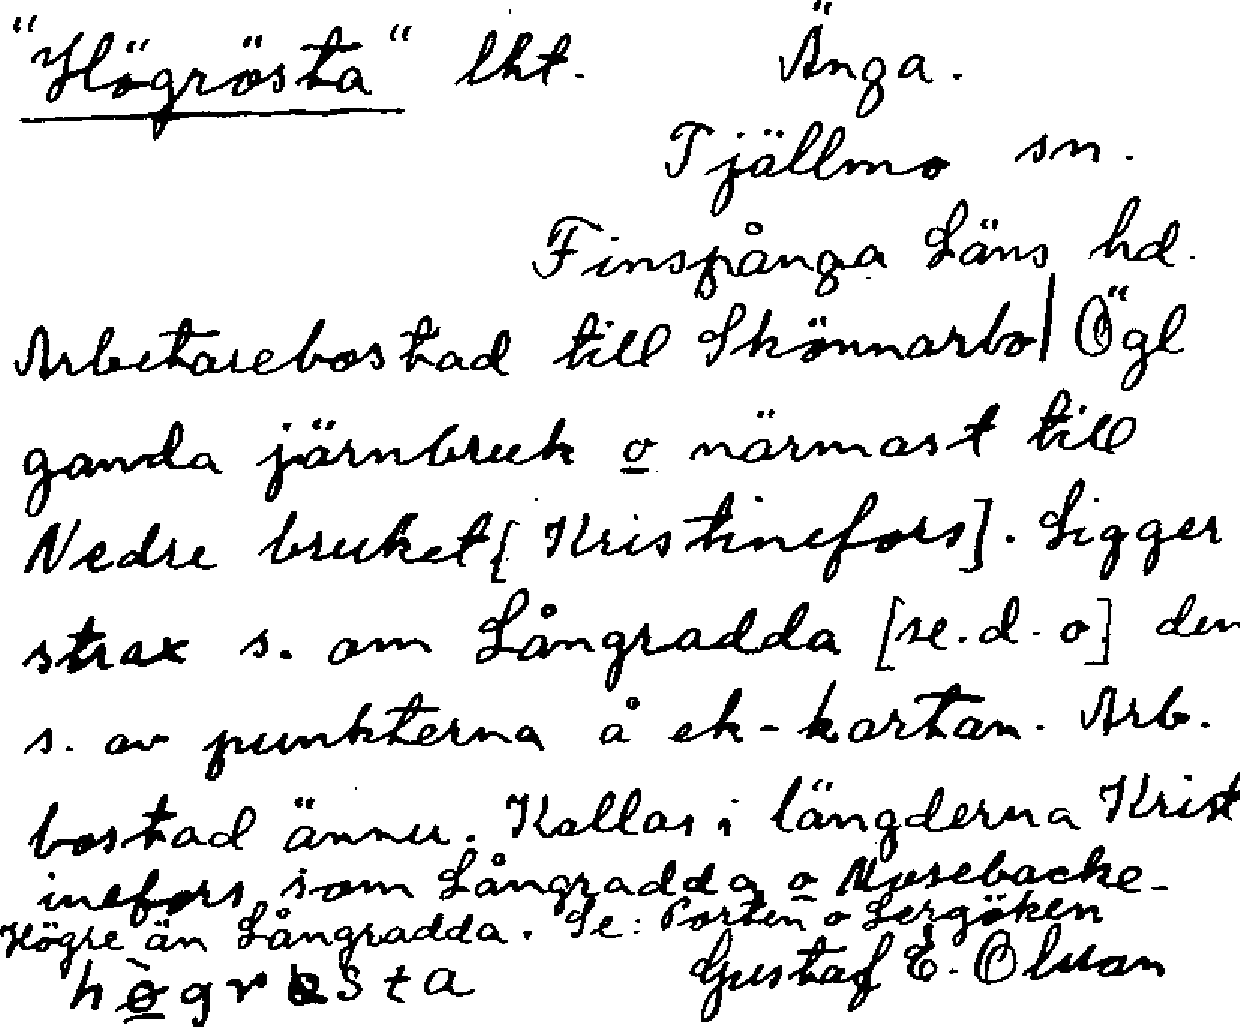 "Högrösta" lht. Änga.
Tjällmo sn.
Finspånga Läns hd.
Arbetarebostad till Skönnarbo| Ögl
ganda järnbruk o närmast till
Nedre bruket [Kristinefors]. Ligger
strax s. om Långradda [se. d. o] den
s. av punkterna å ek-kartan. Arb.
bostad ännu. Kallas i längderna Krist
inefors som Långradda o Mosebacke-
Högre än Långradda. Se: Porten o Lergöken
Gustaf E. Olsson